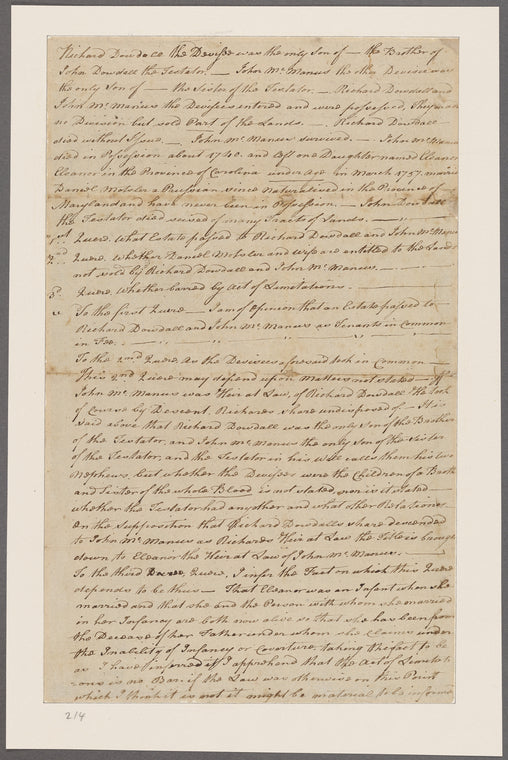 Richard Dowdall the Devisee was the only Son of — the Brother of
John Dowdall the Testator. — John Mc. Manus the other Devisee was
the only Son of — the Sister of the Testator. — Richard Dowdall and
John Mc. Manus the Devisees entered and were possessed, they made
no Division but sold Part of the Lands. — Richard Dowdall
died without Issue. — John Mc. Manus survived. — John Mc. Manus
died in Possession about 1740. and left one Daughter named Eleanor
Eleanor in the Province of Carolina under age in March 1757. married
Daniel a Prussian since naturalised in the Province of
Maryland and have never been in Possession. — John Dowdall
the Testator died seised of many Tracts of Lands. —
1st Quere. What Estate passed to Richard Dowdall and John Mc. Manus
2nd Quere. Whether Daniel and Wife are entitled to the Lands
not sold by Richard Dowdall and John Mc. Manus. —
3d. Quere. Whether barred by Act of Limitations.
To the first Quere — I am of Opinion that an Estate passed to
Richard Dowdall and John Mc. Manus as Tenants in Common
in Fee.
To the 2nd Quere. As the Devisees aforesaid took in Common —
This 2nd Quere may depend upon Matters not stated — If
John Mc. Manus was Heir at Law, of Richard Dowdall He took
of Course by Descent, Richards share undisposed of — It is
said above that Richard Dowdall was the only Son of the Brother
of the Testator, and John Mc. Manus the only Son of the Sister
of the Testator, and the Testator in his Will calls them his two
Nephews, but whether the Devisees were the Children of a Brother
and Sister of the whole Blood is not stated, nor is it stated
whether the Testator had any other and what other Relations
On the Supposition that Richard Dowdalls share descended
to John Mc. Manus as Richards Heir at Law the Title is brought
down to Eleanor the Heir at Law of John Mc. Manus. —
To the third Quere, I infer the Fact on which this Quere
depends to be thus — That Eleanor was an Infant when she
married and that she and the Person with whom she married
in her Infancy are both now alive so that she has been from
the Decease of her Father under whom she Claims under
the Inability of Infancy or Coverture, taking the fact to be
as I have inferred it I apprehend that the Act of Limitati-
ons is no Bar, if the Law was otherwise on this Point
which I think it is not it might be material to be informed
214